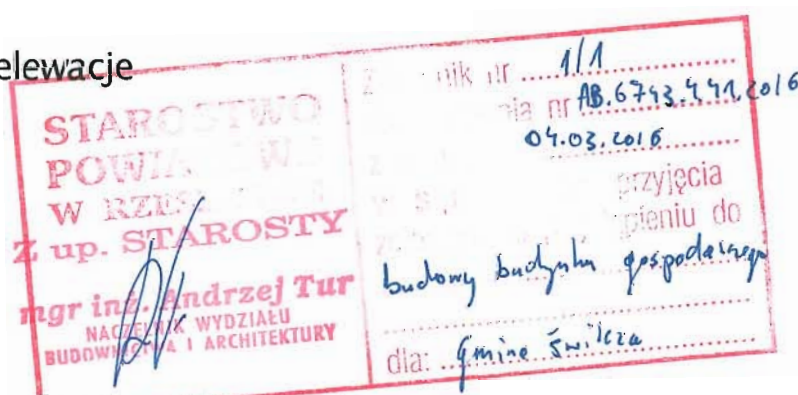 elewacje
STAROSTWO
POWIA
W RZESZ
Z up. STAROSTY
mgr inż. Andrzej Tur
NACZELNIK WYDZIAŁU
BUDOWNICTWA I ARCHITEKTURY
nik nr 1/1
nia nr AB.6743.4.41.2016
04.03.2016
przyjęcia
pieniu do
budowy budynku gospodarczego
dla: Gmina Świlcza